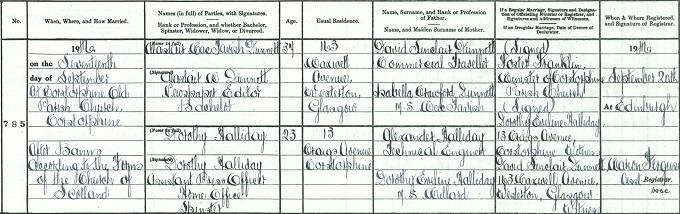 No.
When, Where, and How Married.
Names (in full) of Parties, with Signatures.
Rank or Profession, and whether Bachelor,
Spinster, Widower, Widow, or Divorced.
Age.
Usual Residence.
Name, Surname, and Rank or Profession
of Father.
Name, and Maiden Surname of Mother.
If a Regular Marriage, Signature and Designa-
tion of Officiating Minister or Registrar, and
Signatures and Addresses of Witnesses.
If an Irregular Marriage, Date of Decree of
Declarator.
When & Where Registered,
and Signature of Registrar.
785
1946
on the Seventeenth
day of September
At Corstorphine Old
Parish Church,
Corstorphine
After Banns
According to the Forms
of the Church of
Scotland
(Name in full)
Alastair MacTavish Dunnett
(Signature)
Alastair M. Dunnett
Newspaper Editor
Bachelor
(Name in full)
Dorothy Halliday
(Signature)
Dorothy Halliday
Assistant Press Officer
Home Office
Spinster
37
23
163
Maxwell
Avenue,
Westerton,
Glasgow
13
Craigs Avenue
Corstorphine
David Sinclair Dunnett
Commercial Traveller
Isabella Crawford Dunnett
M.S. MacTavish
Alexander Halliday
Technical Engineer
Dorothy Eveline Halliday
M.S. Millard
(Signed)
Foster Franklin
Minister of Corstorphine
Parish Church
(Signed)
Dorothy Eveline Halliday
13 Craigs Avenue,
Corstorphine Witness
David Sinclair Dunnett
163 Maxwell Avenue,
Westerton, Glasgow
Witness
1946
September 20th
At Edinburgh
Marion Ferguson
Asst Registrar.